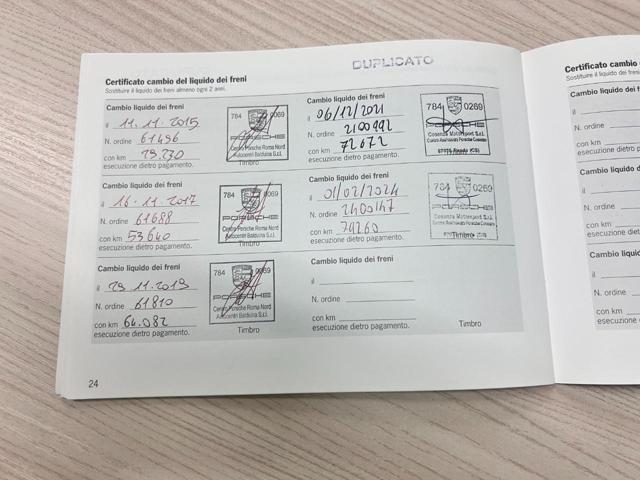 DUPLICATO
Certificato cambio del liquido dei freni
Sostituire il liquido dei freni almeno ogni 2 anni.
Cambio liquido dei freni
il 11.11.2015
N. ordine 61436
con km 29.230
esecuzione dietro pagamento.
784 0069
PORSCHE
Centro Porsche Roma Nord
Autocentri Balduina S.r.l.
Timbro
Cambio liquido dei freni
il 16.11.2017
N. ordine 61688
con km 53640
esecuzione dietro pagamento.
784 0069
PORSCHE
Centro Porsche Roma Nord
Autocentri Balduina S.r.l.
Timbro
Cambio liquido dei freni
il 29.11.2019
N. ordine 61810
con km 64.082
esecuzione dietro pagamento.
784 0069
PORSCHE
Centro Porsche Roma Nord
Autocentri Balduina S.r.l.
Timbro
Cambio liquido dei freni
il 06/12/2021
N. ordine 2100992
con km 72672
esecuzione dietro pagamento.
784 0269
PORSCHE
Cosenza Motorsport S.r.l.
Centro Assistenza Porsche Cosenza
Cambio liquido dei freni
il 01/02/2024
N. ordine 2400147
con km 74260
esecuzione dietro pagamento.
784 0269
PORSCHE
Cosenza Motorsport S.r.l.
Centro Assistenza Porsche Cosenza
Timbro
Cambio liquido dei freni
il
N. ordine
con km
esecuzione dietro pagamento.
Timbro
24
Certificato cambio
Sostituire il liquido dei fren
Cambio liquido dei f
il
N. ordine
con km
esecuzione dietro p
Cambio liquido dei
il
N. ordine
con km
esecuzione dietro
Cambio liquido de
il
N. ordine
con km
esecuzione dietr